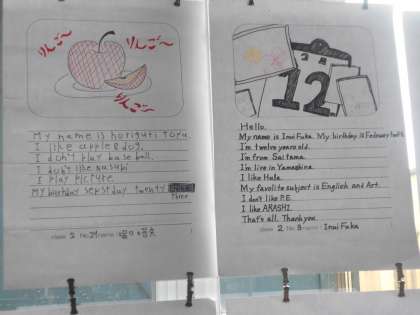 りんご〜
りんご〜
りんご〜
My name is horiguti Toru.
I like apple & dog.
I don't play base ball.
I don't like nasubi
I play picture
My birthday
twenty
Three
class 2 No. 29 name:
2月
12
Hello.
My name is Inui Fuka. My birthday is February
I'm twelve years old.
I'm from Saitama.
I'm live in Yamashina.
I like Hula.
My favolite subject is English and Art.
I don't like P.E.
I like ARASHI.
That's all. Thank you.
class 2 No. 3 name: Inui Fuka